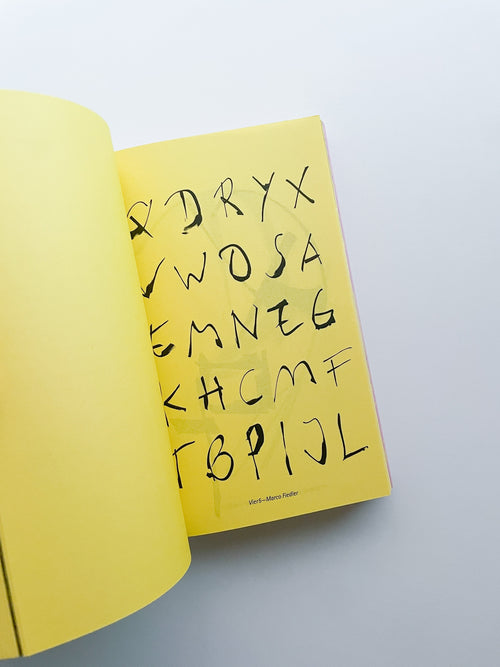 Q D R Y X
V W O S A
E M N Z G
K H C M F
T B P I J L
Vier5—Marco Fiedler